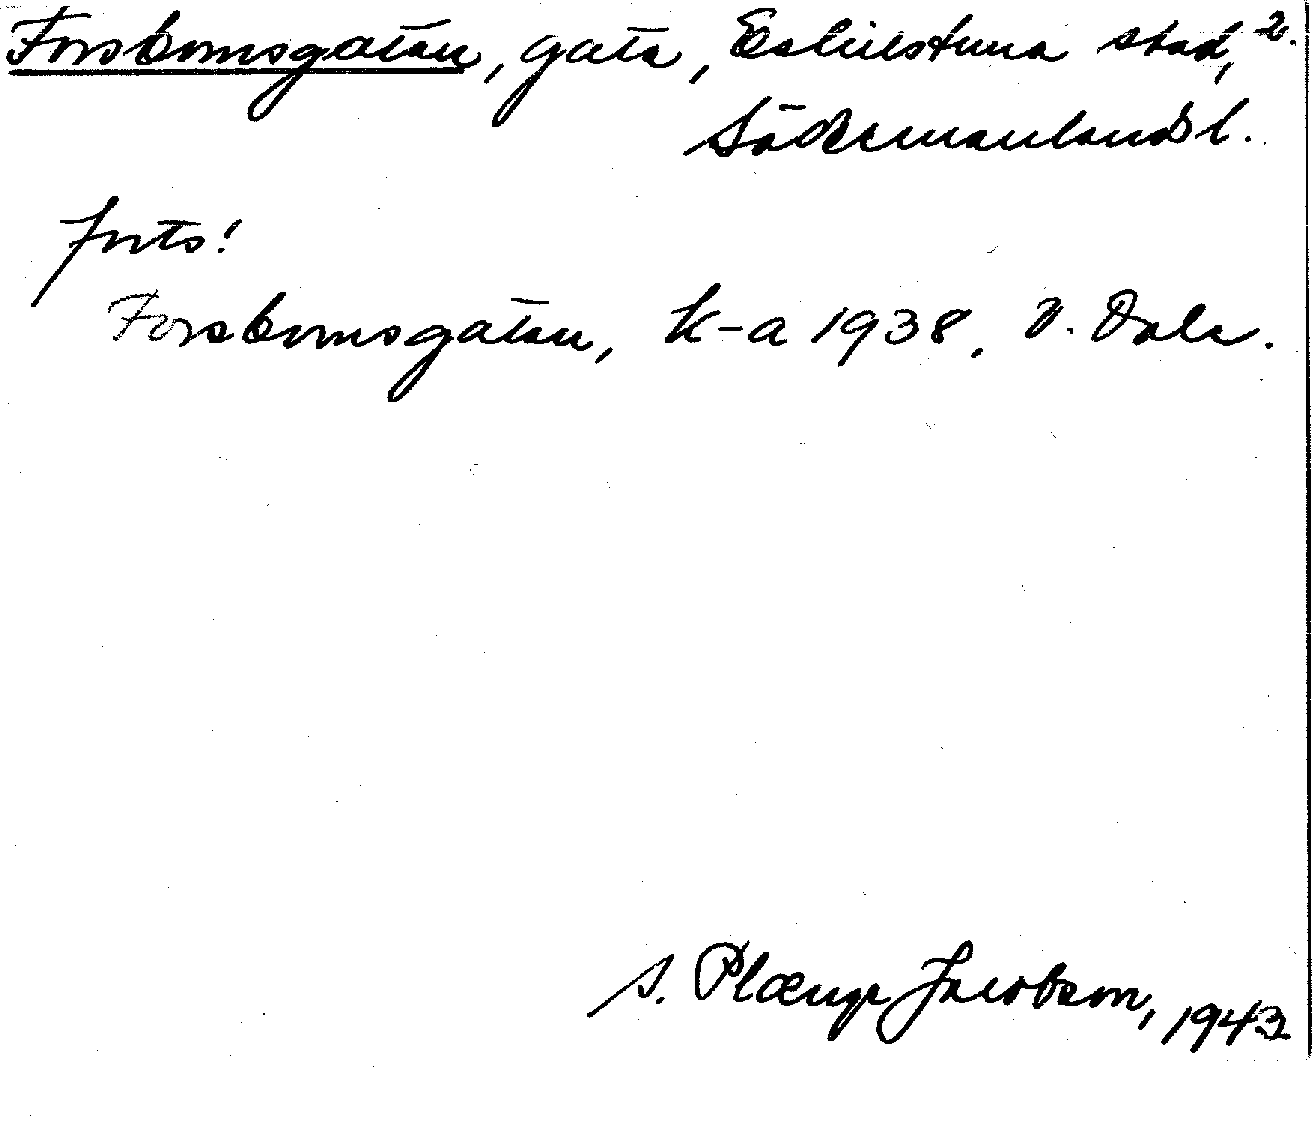 Forsbomsgatan, gata, Eskilstuna stad, 2.
Södermanlands l.
forts!
Forsbomsgatan, k-a 1938, V. Dala.
S. Plænge Jacobson, 1943